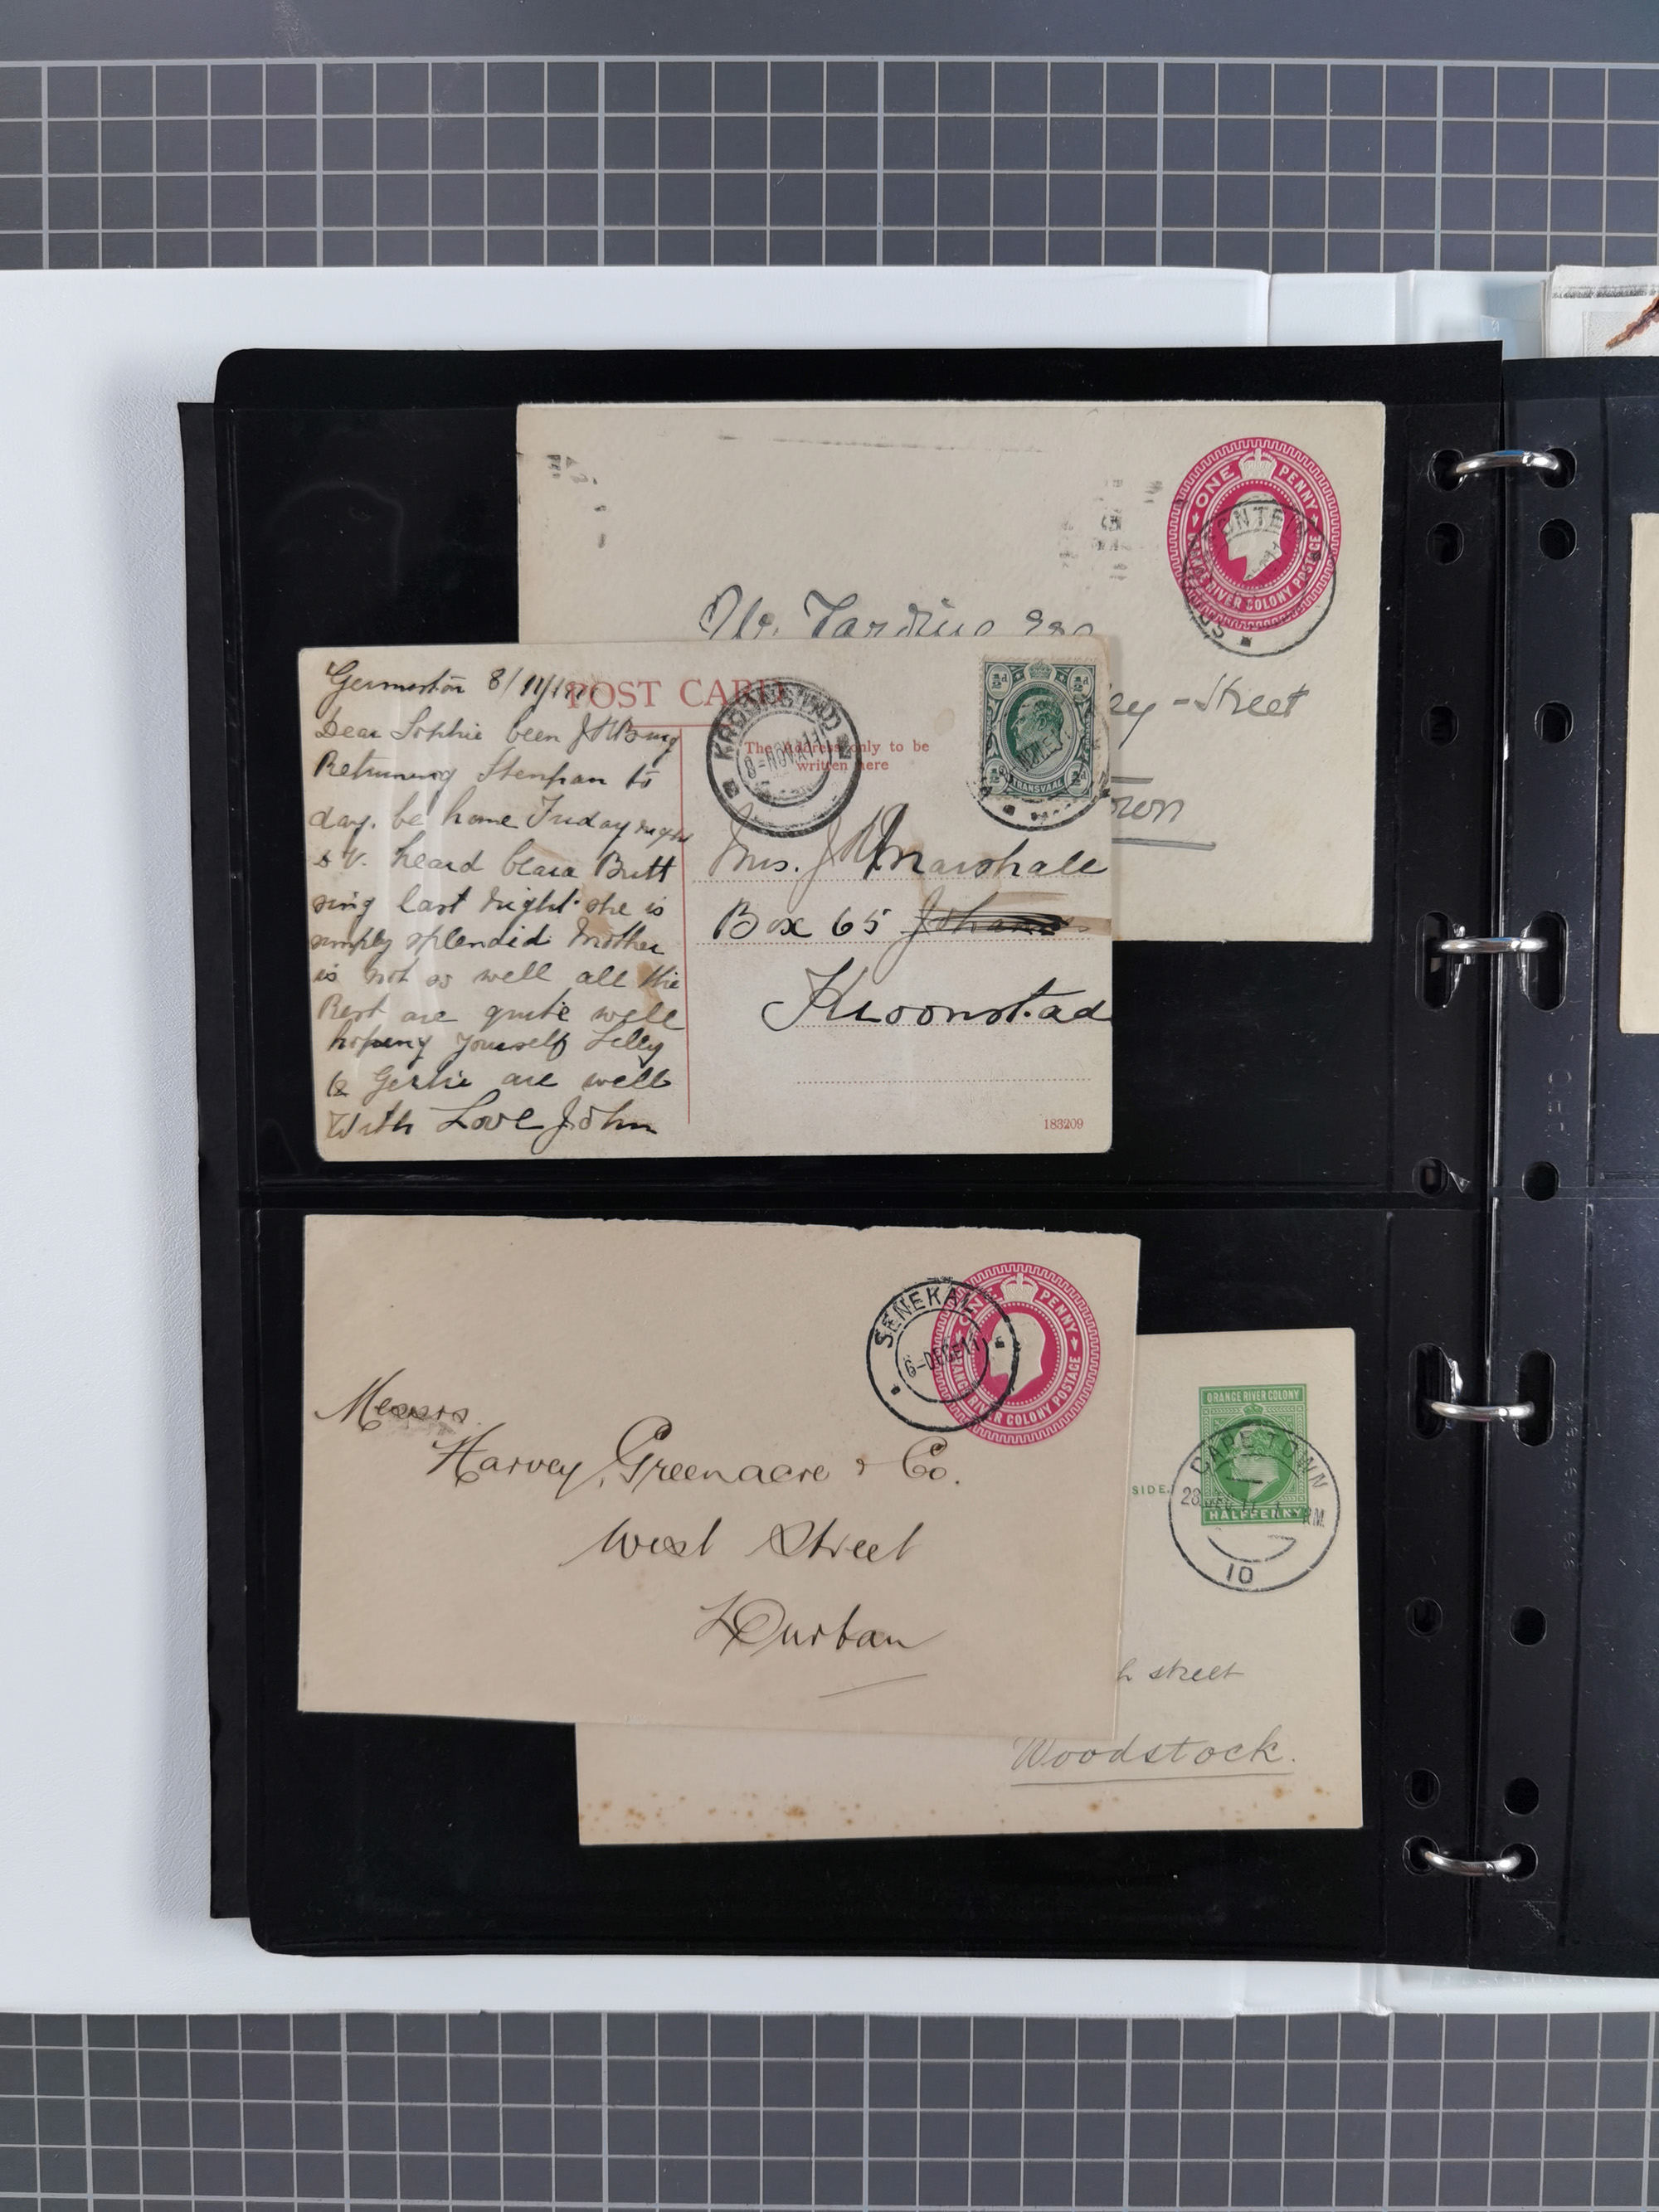 ONE PENNY
ORANGE RIVER COLONY POSTAGE
ONTEIN
Tardius Esq
ey - Street
own
Germiston 8/11/11
POST CARD
Dear Sophie been J H Burg
Returning Stenpan to
day. be home Friday night
D.V. heard Clara Butt
sing last night. she is
simply splendid. Mother
is not so well all the
Rest are quite well
hoping yourself Lilly
& Gertie are well
With Love John
KROONSTAD
8-NOV A 11
The address only to be
written here
½d ½d
½d ½d
TRANSVAAL
Mrs. J H Marshall
Box 65
Kroonstad
183209
SENEKAL
6-DEC 11
ONE PENNY
ORANGE RIVER COLONY POSTAGE
Messrs.
Harvey, Greenacre & Co.
West Street
Durban
ORANGE RIVER COLONY
HALFPENNY
SIDE.
CAPE TOWN
28 NOV 11
10
h street
Woodstock.